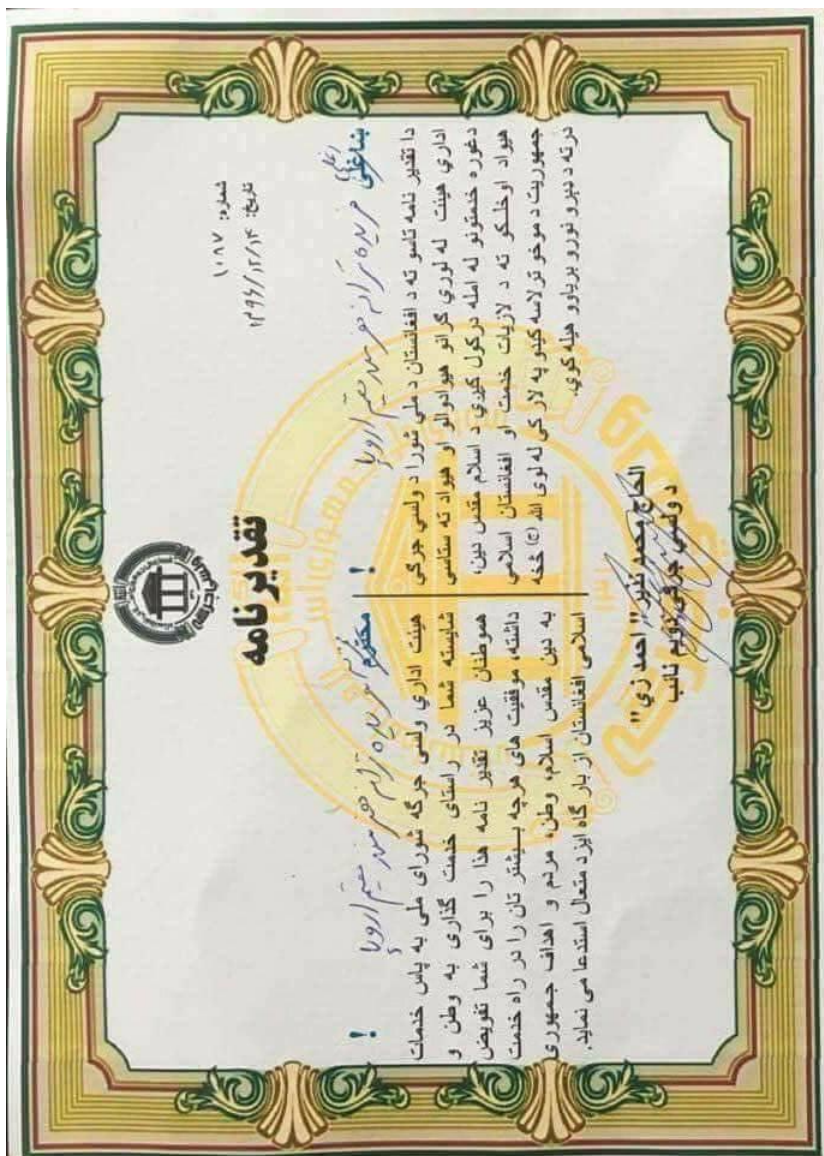 شماره: ۱۰۸۷
تاریخ: ۱۳۹۶/۱۲/۱۴
تقدیرنامه
ښاغلی فریده ترانه هنرمند مقیم اروپا !
دا تقدیر نامه تاسو ته د افغانستان د ملي شورا د ولسي جرګې
اداري هیئت له لوري ګرانو هیوادوالو او هیواد ته ستاسې
دغوره خدمتونو له امله درکول کیږي د اسلام مقدس دین،
هیواد اوخلکو ته د لازیات خدمت او افغانستان اسلامي
جمهوریت د موخو ترلاسه کیدو په لار کې له لوی الله (ج) څخه
درته د ډیرو نورو بریاوو هیله کوي.
محترم فریده ترانه هنرمند مقیم اروپا !
هیئت اداري ولسی جرگه شورای ملی به پاس خدمات
شایسته شما در راستای خدمت گذاری به وطن و
هموطنان عزیز تقدیر نامه هذا را برای شما تفویض
داشته، موفقیت های هرچه بیشتر تان را در راه خدمت
به دین مقدس اسلام، وطن، مردم و اهداف جمهوری
اسلامی افغانستان از بار گاه ایزد متعال استدعا می نماید.
الحاج محمد نذیر "احمد زی"
د ولسي جرګې دویم نائب